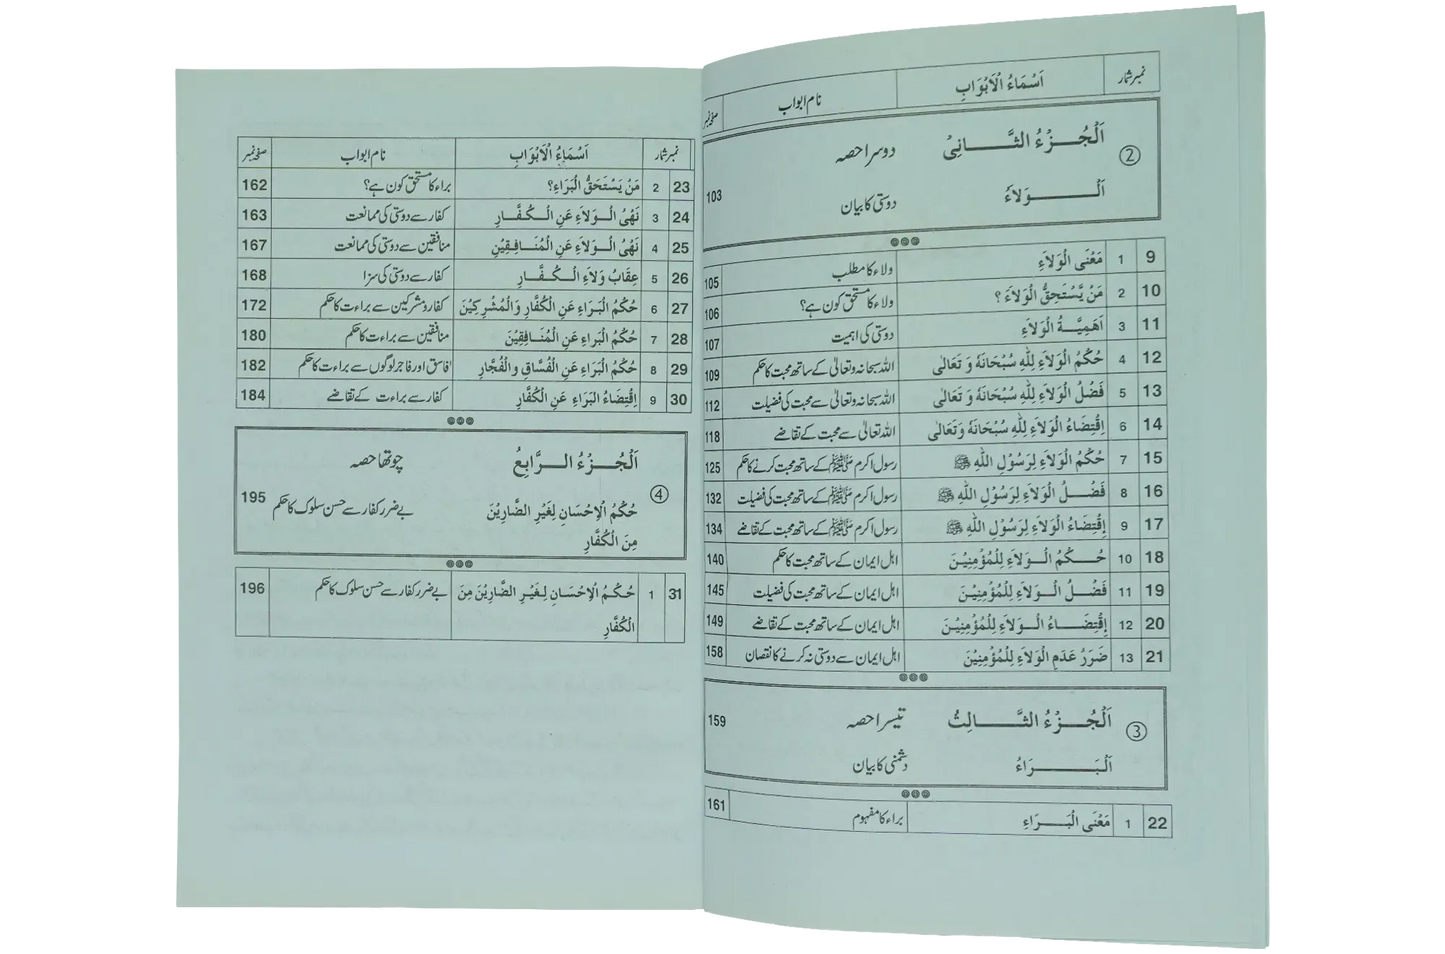 نمبر شمار اَسْمَاءُ الْاَبْوَابِ نام ابواب صفحہ نمبر
② اَلْجُزْءُ الثَّانِىْ دوسرا حصہ
اَلْوَلَاءُ دوستی کا بیان 103
9 1 مَعْنَى الْوَلَاءِ ولاء کا مطلب 105
10 2 مَنْ يَّسْتَحِقُّ الْوَلَاءَ ؟ ولاء کا مستحق کون ہے؟ 106
11 3 اَهَمِيَّةُ الْوَلَاءِ دوستی کی اہمیت 107
12 4 حُكْمُ الْوَلَاءِ لِلّٰهِ سُبْحَانَهٗ وَ تَعَالٰى اللہ سبحانہ وتعالیٰ کے ساتھ محبت کا حکم 109
13 5 فَضْلُ الْوَلَاءِ لِلّٰهِ سُبْحَانَهٗ وَ تَعَالٰى اللہ سبحانہ وتعالیٰ سے محبت کی فضیلت 112
14 6 اِقْتِضَاءُ الْوَلَاءِ لِلّٰهِ سُبْحَانَهٗ وَتَعَالٰى اللہ تعالیٰ سے محبت کے تقاضے 118
15 7 حُكْمُ الْوَلَاءِ لِرَسُوْلِ اللّٰهِ ﷺ رسول اکرم ﷺ کے ساتھ محبت کرنے کا حکم 125
16 8 فَضْلُ الْوَلَاءِ لِرَسُوْلِ اللّٰهِ ﷺ رسول اکرم ﷺ کے ساتھ محبت کی فضیلت 132
17 9 اِقْتِضَاءُ الْوَلَاءِ لِرَسُوْلِ اللّٰهِ ﷺ رسول اکرم ﷺ کے ساتھ محبت کے تقاضے 134
18 10 حُكْمُ الْوَلَاءِ لِلْمُؤْمِنِيْنَ اہل ایمان کے ساتھ محبت کا حکم 140
19 11 فَضْلُ الْوَلَاءِ لِلْمُؤْمِنِيْنَ اہل ایمان کے ساتھ محبت کی فضیلت 145
20 12 اِقْتِضَاءُ الْوَلَاءِ لِلْمُؤْمِنِيْنَ اہل ایمان کے ساتھ محبت کے تقاضے 149
21 13 ضَرَرُ عَدَمِ الْوَلَاءِ لِلْمُؤْمِنِيْنَ اہل ایمان سے دوستی نہ کرنے کا نقصان 158
③ اَلْجُزْءُ الثَّالِثُ تیسرا حصہ 159
اَلْبَرَاءُ دشمنی کا بیان
22 1 مَعْنَى الْبَرَاءِ براء کا مفہوم 161
نمبر شمار اَسْمَاءُ الْاَبْوَابِ نام ابواب صفحہ نمبر
23 2 مَنْ يَسْتَحَقُّ الْبَرَاءِ؟ براء کا مستحق کون ہے؟ 162
24 3 نَهْىُ الْوَلَاءِ عَنِ الْكُفَّارِ کفار سے دوستی کی ممانعت 163
25 4 نَهْىُ الْوَلَاءِ عَنِ الْمُنَافِقِيْنِ منافقین سے دوستی کی ممانعت 167
26 5 عِقَابُ وَلَاءِ الْكُفَّارِ کفار سے دوستی کی سزا 168
27 6 حُكْمُ الْبَرَاءِ عَنِ الْكُفَّارِ وَالْمُشْرِكِيْنَ کفار و مشرکین سے براءت کا حکم 172
28 7 حُكْمُ الْبَراءِ عَنِ الْمُنَافِقِيْنَ منافقین سے براءت کا حکم 180
29 8 حُكْمُ الْبَرَاءِ عَنِ الْفُسَّاقِ والْفُجَّارِ فاسق اور فاجر لوگوں سے براءت کا حکم 182
30 9 اِقْتِضَاءُ البَرَاءِ عَنِ الْكُفَّارِ کفار سے براءت کے تقاضے 184
④ اَلْجُزْءُ الرَّابِعُ چوتھا حصہ
حُكْمُ الْاِحْسَانِ لِغَيْرِ الضَّارِيْنَ بے ضرر کفار سے حسن سلوک کا حکم 195
مِنَ الْكُفَّارِ
31 1 حُكْمُ الْاِحْسَانِ لِغَيْرِ الضَّارِيْنَ مِنَ بے ضرر کفار سے حسن سلوک کا حکم 196
الْكُفَّارِ